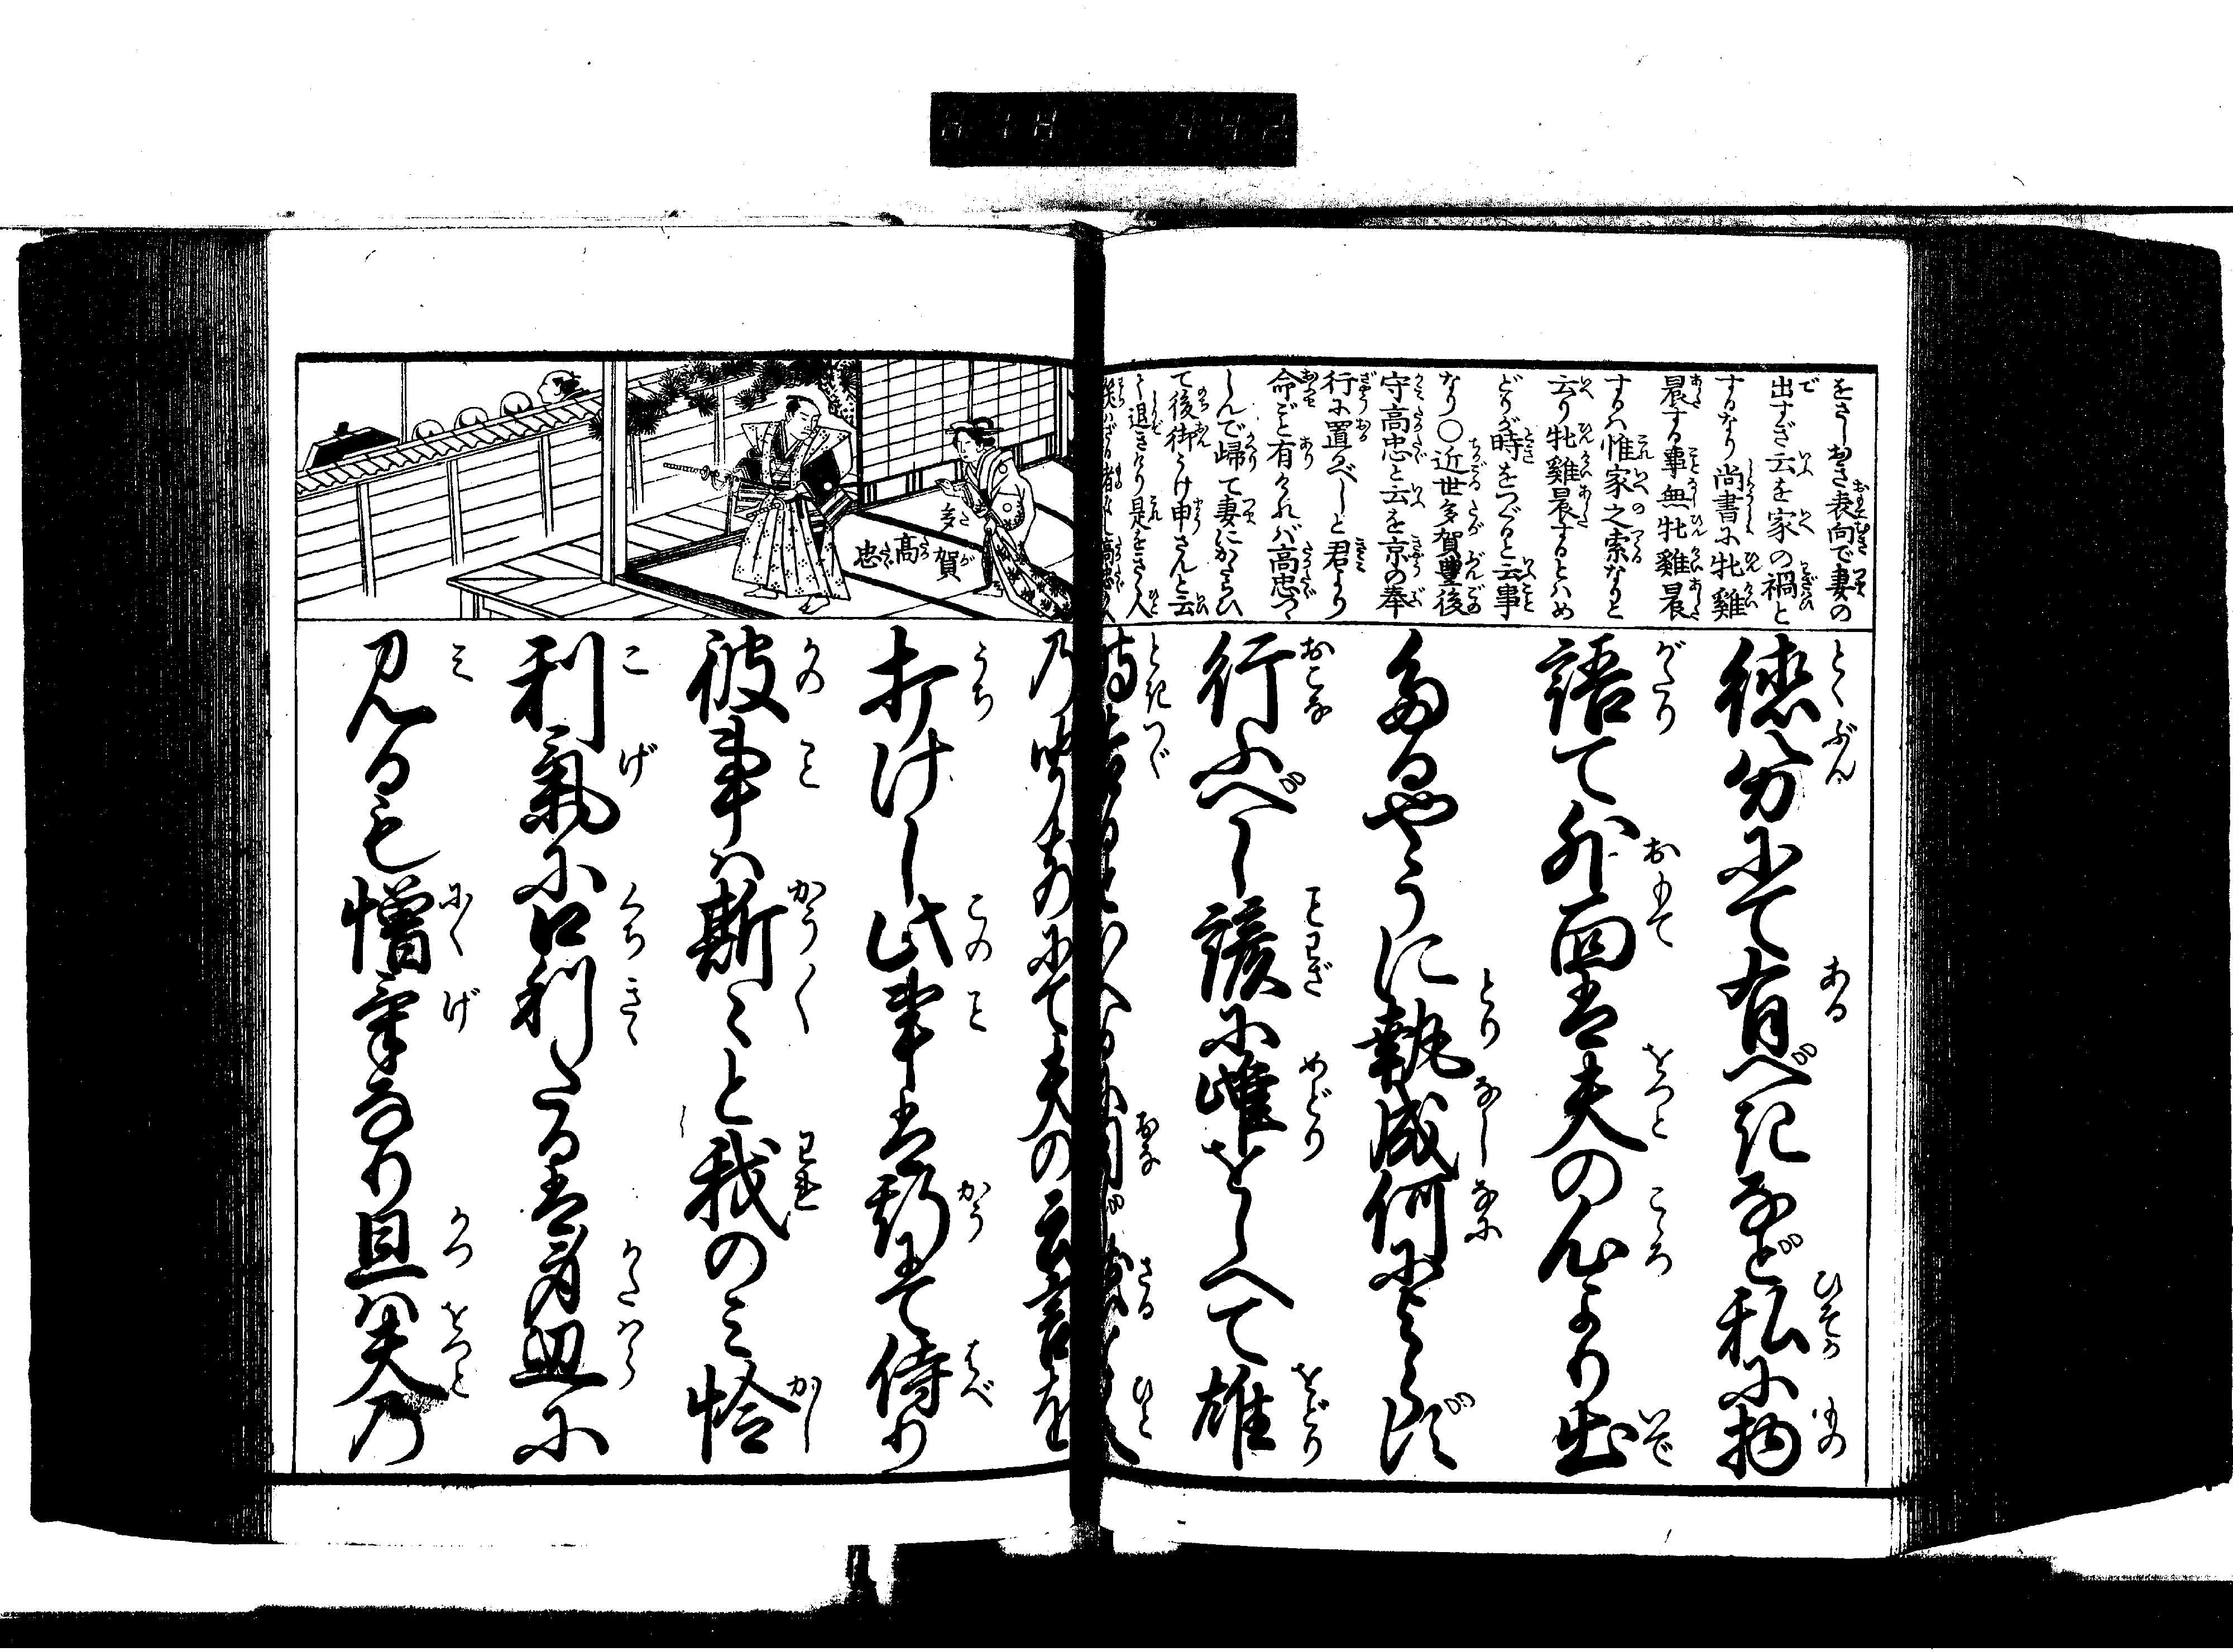 をさしおき表向で妻の
出すぎ云を家の禍と
するなり尚書に牝雞
晨する事無牝雞晨
するハ惟家之索なりと
云り牝雞晨するとハめ
どりが時をつぐると云事
なり〇近世多賀豊後
守高忠と云を京の奉
行に置るべしと君より
命ごと有けれバ高忠つゝ
しんで帰て妻にかたらひ
て後御うけ申さんと云
て退きけり是をきく人
笑ハざる者なし高忠
徳分にて有べきなど私に物
語て外面は夫の心より出
たるやうに執成何によらず
行ふべし諺に雌をしへて雄
時を
多賀高忠
乃噂などにて夫の云言を
打けし此事は斯にて侍り
彼事ハ斯々と我のミ怜
利気に口利たるは身辺に
見るも憎気なり且ハ夫乃